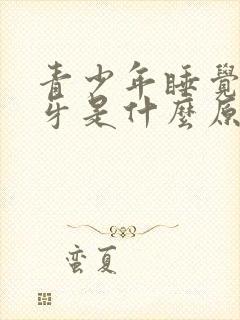 青少年睡覺
牙是什麼原
蛮夏